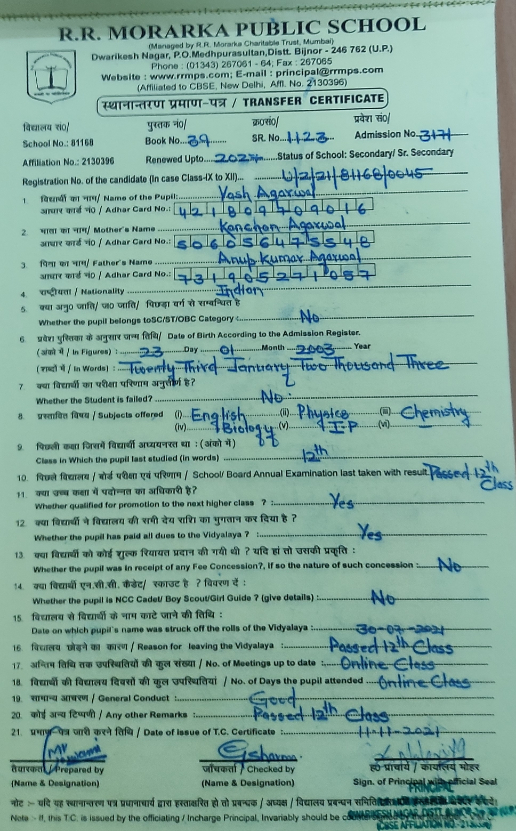 R.R. MORARKA PUBLIC SCHOOL
(Managed by R.R. Morarka Charitable Trust, Mumbai)
Dwarikesh Nagar, P.O.Medhpurasultan,Distt. Bijnor - 246 762 (U.P.)
Phone : (01343) 267061 - 64; Fax : 267065
Website : www.rrmps.com; E-mail : principal@rrmps.com
(Affiliated to CBSE, New Delhi, Affl. No. 2130396)
स्थानान्तरण प्रमाण-पत्र / TRANSFER CERTIFICATE
विद्यालय सं0/ पुस्तक नं0/ क्र0सं0/ प्रवेश सं0/
School No.: 81168 Book No. 39 SR. No. 1123 Admission No. 3171
Affiliation No.: 2130396 Renewed Upto. Status of School: Secondary/ Sr. Secondary
Registration No. of the candidate (In case Class-IX to XII) U/2/21/81168/0045
1. विद्यार्थी का नाम/ Name of the Pupil: Yash Agarwal
आधार कार्ड नं0 / Adhar Card No.: 421809709016
2. माता का नाम/ Mother's Name Kanchan Agarwal
आधार कार्ड नं0 / Adhar Card No.: 506056475548
3. पिता का नाम/ Father's Name Anup Kumar Agarwal
आधार कार्ड नं0 / Adhar Card No.: 731905271057
4. राष्ट्रीयता / Nationality Indian
5. क्या अनु0 जाति/ ज0 जाति/ पिछड़ा वर्ग से सम्बन्धित है
Whether the pupil belongs toSC/ST/OBC Category : No
6. प्रवेश पुस्तिका के अनुसार जन्म तिथि/ Date of Birth According to the Admission Register.
(अंको में / In Figures) : 23 Day 01 Month 2003 Year
(शब्दों में / In Words) : Twenty Third January Two Thousand Three
7. क्या विद्यार्थी का परीक्षा परिणाम अनुत्तीर्ण है?
Whether the Student is failed? No
8. प्रस्तावित विषय / Subjects offered (i) English (ii) Physics (iii) Chemistry
(iv) Biology (v) I.P (vi)
9. पिछली कक्षा जिसमें विद्यार्थी अध्ययनरत था : (अंको में)
Class in Which the pupil last studied (in words) 12th
10. पिछले विद्यालय / बोर्ड परीक्षा एवं परिणाम / School/ Board Annual Examination last taken with result Passed 12th Class
11. क्या उच्च कक्षा में पदोन्नत का अधिकारी है?
Whether qualified for promotion to the next higher class ? : Yes
12. क्या विद्यार्थी ने विद्यालय की सभी देय राशि का भुगतान कर दिया है ?
Whether the pupil has paid all dues to the Vidyalaya ? : Yes
13. क्या विद्यार्थी को कोई शुल्क रियायत प्रदान की गयी थी ? यदि हां तो उसकी प्रकृति :
Whether the pupil was in receipt of any Fee Concession?, If so the nature of such concession : No
14. क्या विद्यार्थी एन.सी.सी. कैडेट/ स्काउट है ? विवरण दें :
Whether the pupil is NCC Cadet/ Boy Scout/Girl Guide ? (give details) : No
15. विद्यालय से विद्यार्थी के नाम काटे जाने की तिथि :
Date on which pupil's name was struck off the rolls of the Vidyalaya : 30-07-2021
16. विद्यालय छोड़ने का कारण / Reason for leaving the Vidyalaya : Passed 12th Class
17. अन्तिम तिथि तक उपस्थितियों की कुल संख्या / No. of Meetings up to date : Online Class
18. विद्यार्थी की विद्यालय दिवसों की कुल उपस्थितियां / No. of Days the pupil attended Online Class
19. सामान्य आचरण / General Conduct : Good
20. कोई अन्य टिप्पणी / Any other Remarks : Passed 12th Class
21. प्रमाण पत्र जारी करने तिथि / Date of Issue of T.C. Certificate 11-11-2021
तैयारकर्ता / Prepared by जाँचकर्ता / Checked by ह0 प्राचार्य / कार्यालय मोहर
(Name & Designation) (Name & Designation) Sign. of Principal with official Seal
PRINCIPAL
नोट :- यदि यह स्थानान्तरण पत्र प्रधानाचार्य द्वारा हस्ताक्षरित हो तो प्रबन्धक / अध्यक्ष / विद्यालय प्रबन्धन समिति
Note :- If, this T.C. is issued by the officiating / Incharge Principal, Invariably should be
CBSE AFFILIATION NO. 2130396